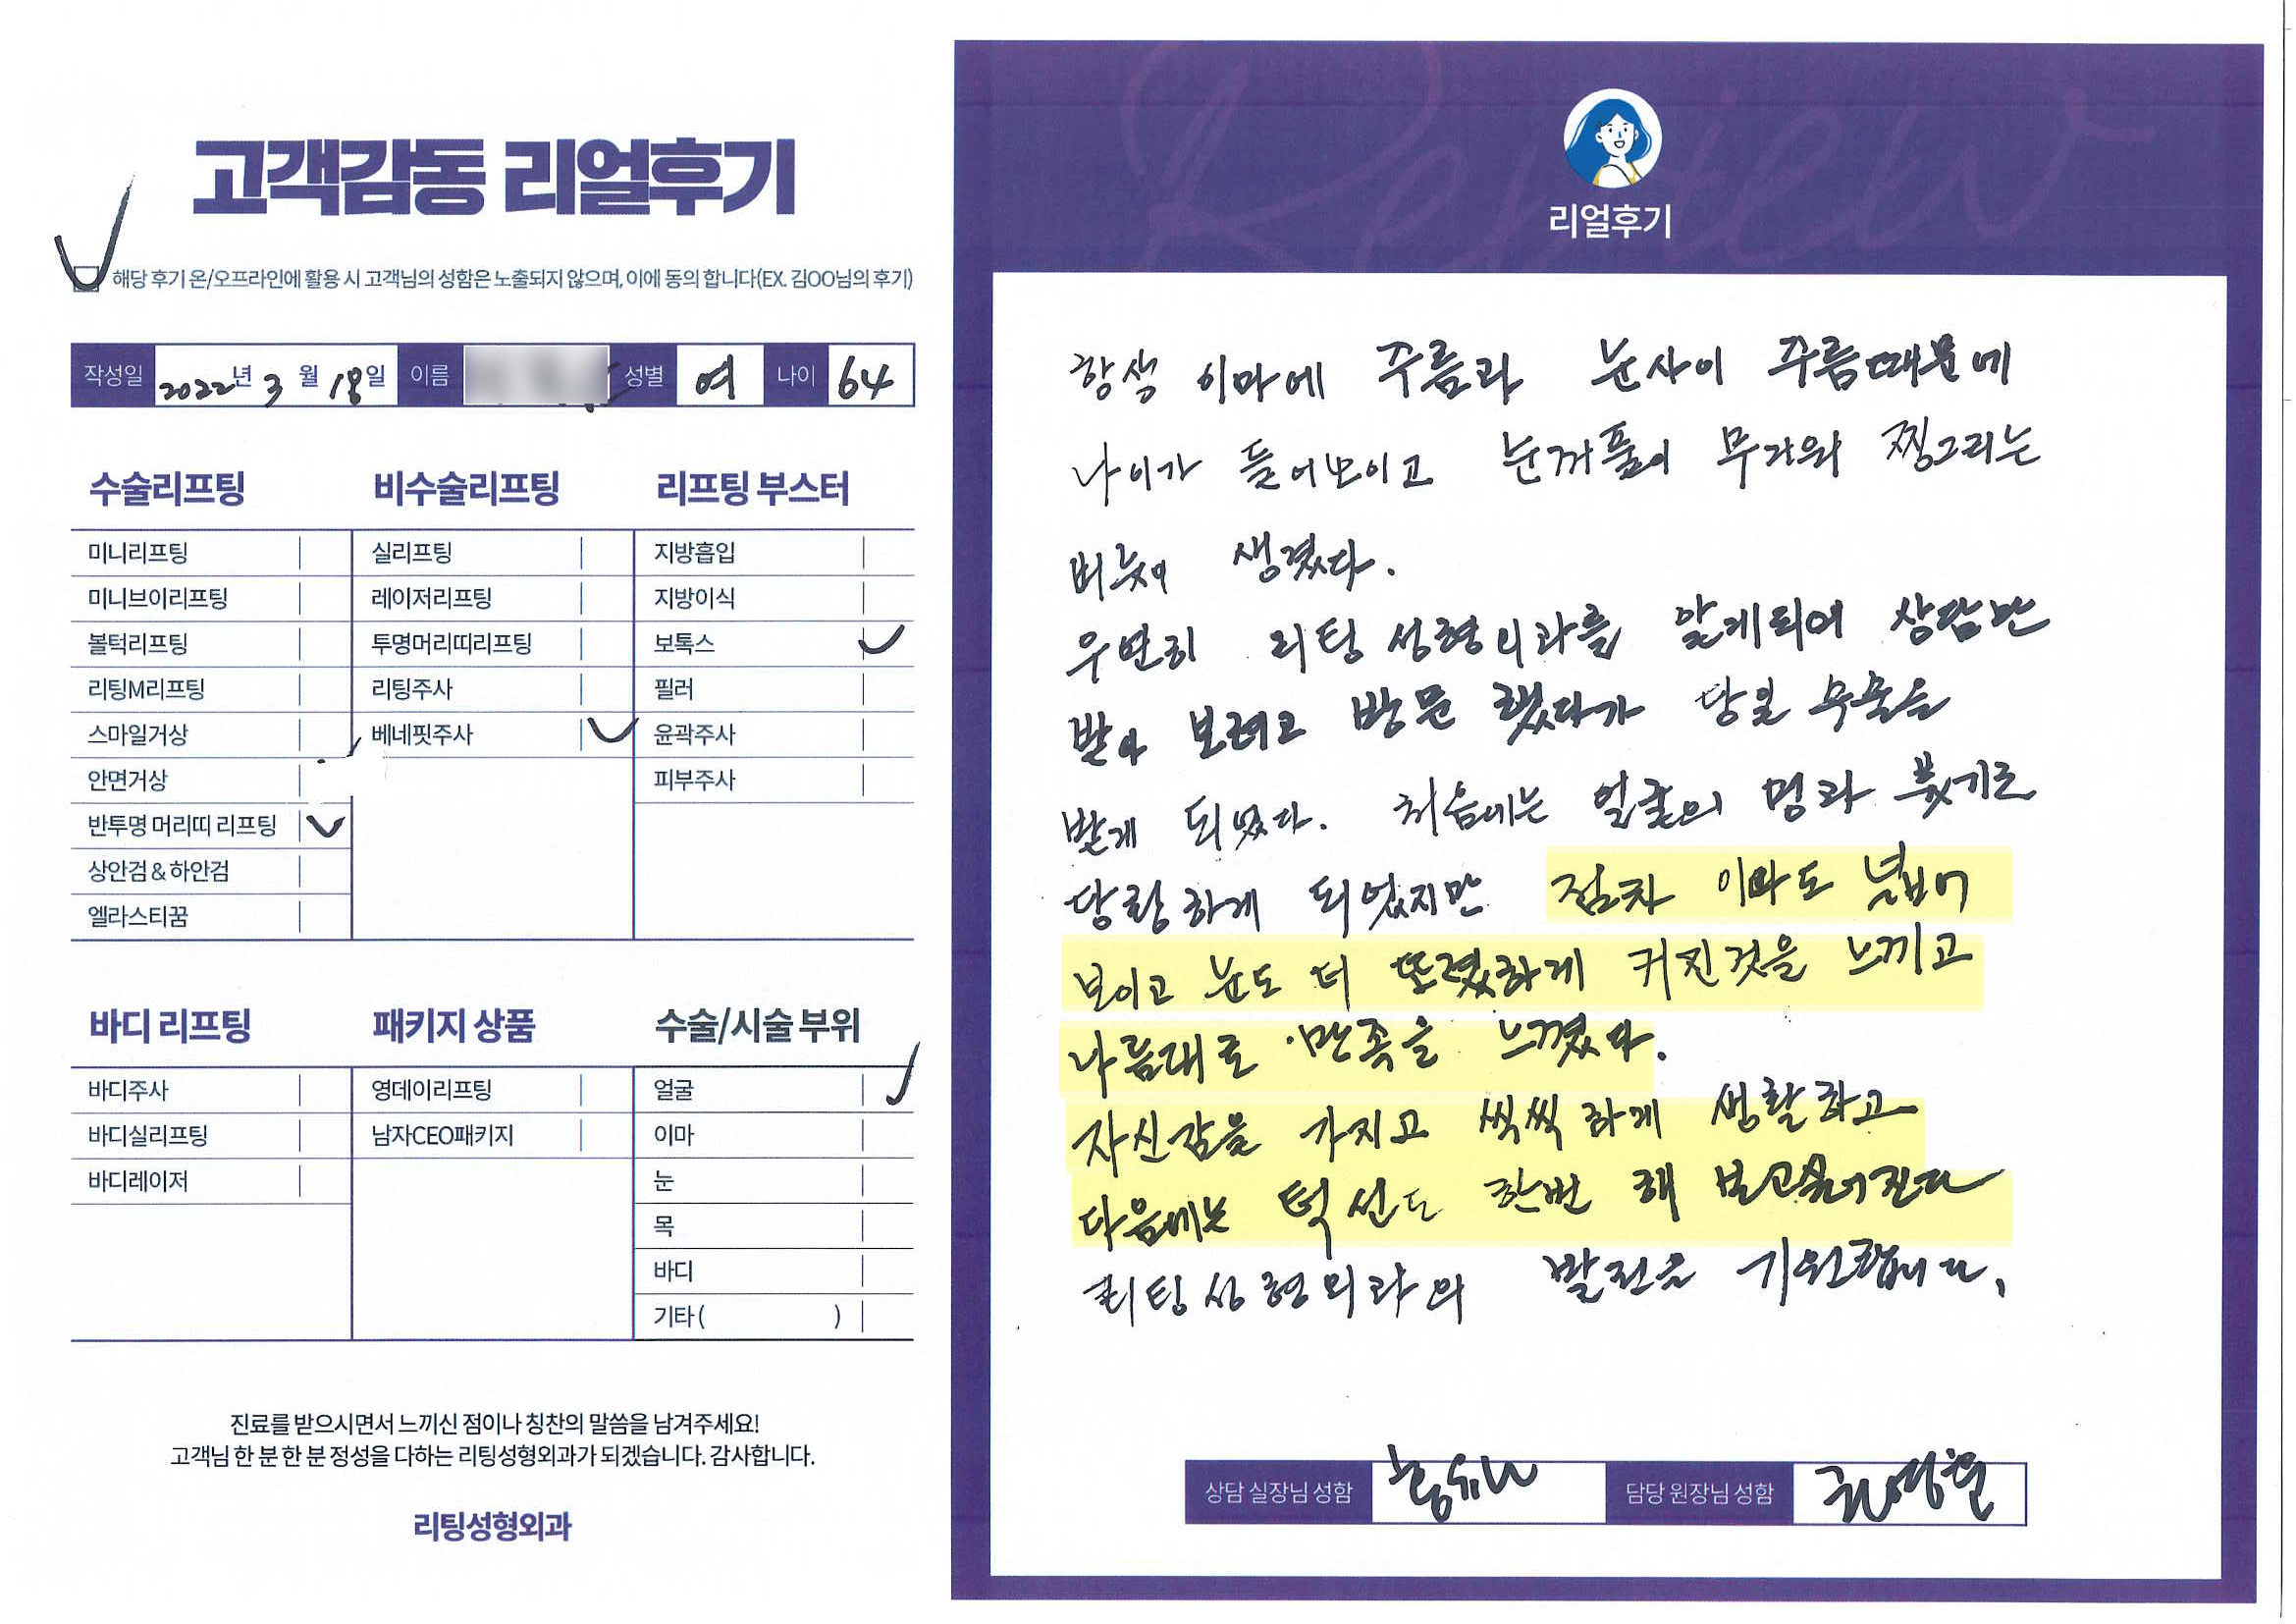 고객감동 리얼후기
해당 후기 온/오프라인에 활용 시 고객님의 성함은 노출되지 않으며, 이에 동의 합니다(EX. 김OO님의 후기)
작성일 2022년 3월 18일 이름 성별 여 나이 64
수술리프팅
미니리프팅
미니브이리프팅
볼턱리프팅
리팅M리프팅
스마일거상
안면거상
반투명 머리띠 리프팅
상안검 & 하안검
엘라스티꿈
비수술리프팅
실리프팅
레이저리프팅
투명머리띠리프팅
리팅주사
베네핏주사
리프팅 부스터
지방흡입
지방이식
보톡스
필러
윤곽주사
피부주사
바디 리프팅
바디주사
바디실리프팅
바디레이저
패키지 상품
영데이리프팅
남자CEO패키지
수술/시술 부위
얼굴
이마
눈
목
바디
기타 ( )
진료를 받으시면서 느끼신 점이나 칭찬의 말씀을 남겨주세요!
고객님 한 분 한 분 정성을 다하는 리팅성형외과가 되겠습니다. 감사합니다.
리팅성형외과
Review
리얼후기
항상 이마에 주름과 눈사이 주름때문에
나이가 들어보이고 눈꺼풀이 무거워 찡그리는
버릇이 생겼다.
우연히 리팅 성형외과를 알게되어 상담만
받아 보려고 방문 했다가 당일 수술을
받게 되었다. 처음에는 얼굴의 멍과 붓기로
당황하게 되었지만 점차 이마도 넓어
보이고 눈도 더 또렷하게 커진것을 느끼고
나름대로 만족을 느꼈다.
자신감을 가지고 씩씩하게 생활하고
다음에는 턱선도 한번 해 보고싶어진다
리팅성형외과의 발전을 기원합니다.
상담 실장님 성함 담당 원장님 성함